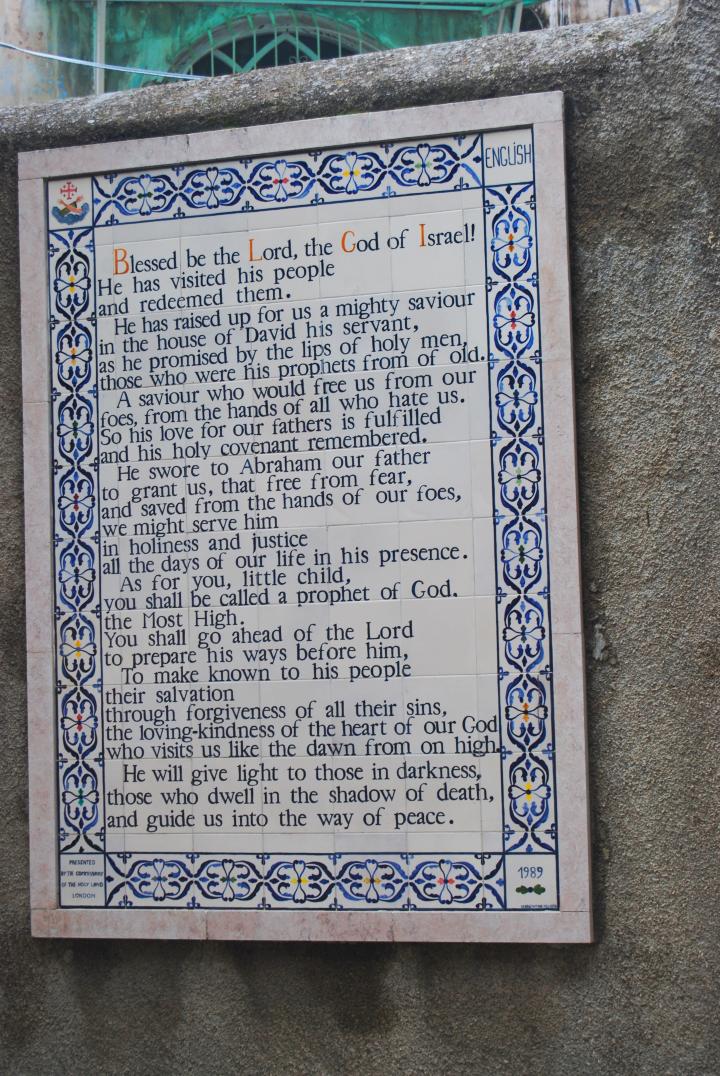 ENGLISH
Blessed be the Lord, the God of Israel!
He has visited his people
and redeemed them.
He has raised up for us a mighty saviour
in the house of David his servant,
as he promised by the lips of holy men,
those who were his prophets from of old.
A saviour who would free us from our
foes, from the hands of all who hate us.
So his love for our fathers is fulfilled
and his holy covenant remembered.
He swore to Abraham our father
to grant us, that free from fear,
and saved from the hands of our foes,
we might serve him
in holiness and justice
all the days of our life in his presence.
As for you, little child,
you shall be called a prophet of God,
the Most High.
You shall go ahead of the Lord
to prepare his ways before him,
To make known to his people
their salvation
through forgiveness of all their sins,
the loving-kindness of the heart of our God
who visits us like the dawn from on high.
He will give light to those in darkness,
those who dwell in the shadow of death,
and guide us into the way of peace.
PRESENTED
BY THE COMMISSARY
OF THE HOLY LAND
LONDON
1989